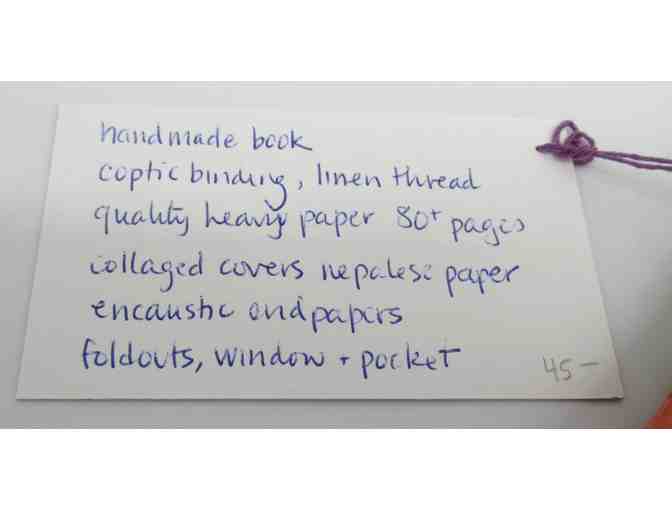 handmade book
coptic binding, linen thread
quality heavy paper 80+ pages
collaged covers nepalese paper
encaustic endpapers
foldouts, window + pocket
45-